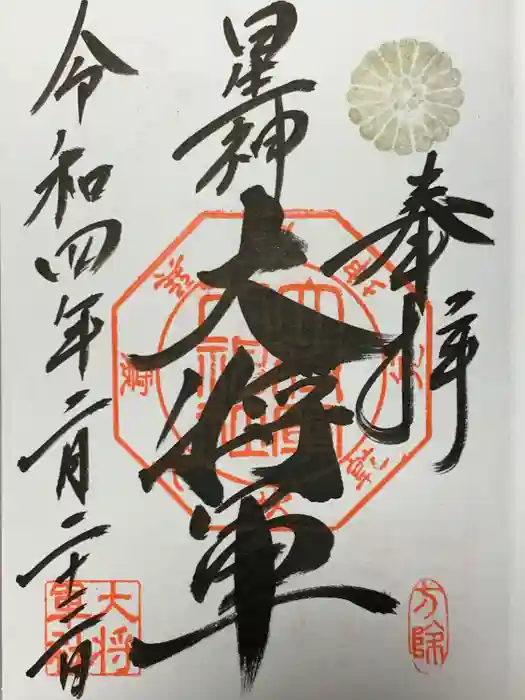 奉拝
星神
大将軍
令和四年二月二十二日
方除
大将軍社